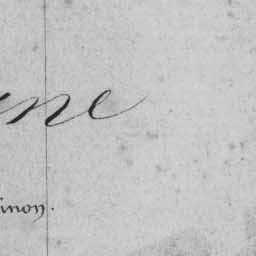 ne
inon.